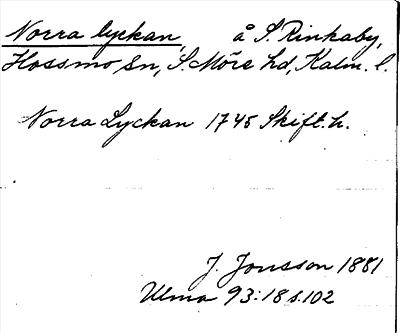 Norra lyckan, å S Rinkaby,
Hossmo sn, S Möre hd, Kalm. l.
Norra Lyckan 1745 Skift. h.
J. Jonsson 1881
Ulma 93:18 s. 102